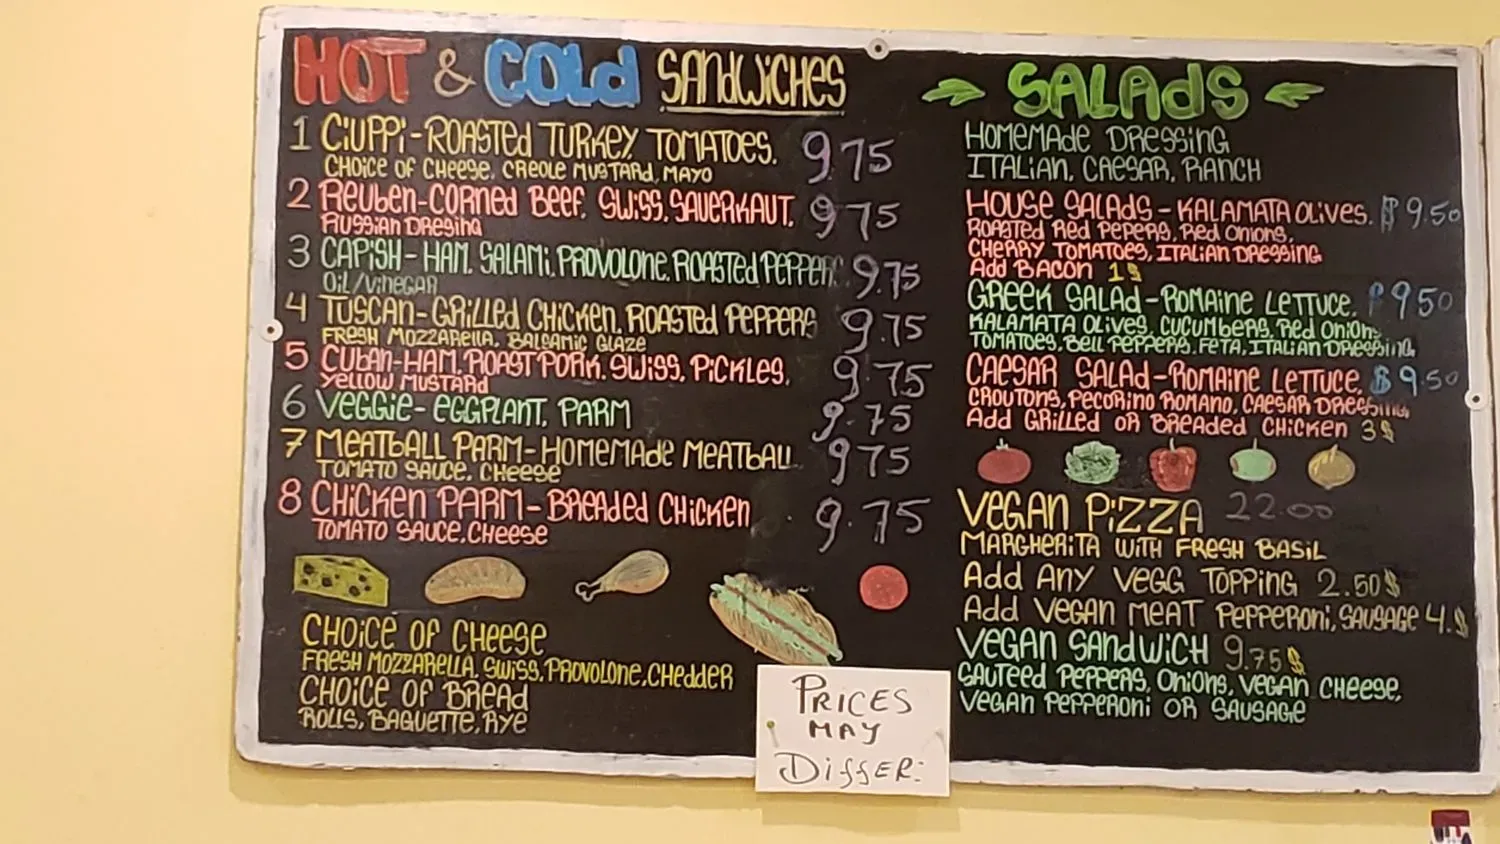 HOT & COLD SANDWICHES
1 CIUPPI-ROASTED TURKEY, TOMATOES. 9.75
CHOICE OF CHEESE, CREOLE MUSTARD, MAYO
2 REUBEN-CORNED BEEF, SWISS, SAUERKAUT, 9.75
RUSSIAN DRESING
3 CAPISH-HAM, SALAMI, PROVOLONE, ROASTED PEPPERS 9.75
OIL/VINEGAR
4 TUSCAN-GRILLED CHICKEN, ROASTED PEPPERS 9.75
FRESH MOZZARELLA, BALSAMIC GLAZE
5 CUBAN-HAM, ROAST PORK, SWISS, PICKLES, 9.75
YELLOW MUSTARD
6 VEGGIE-EGGPLANT, PARM 9.75
7 MEATBALL PARM-HOMEMADE MEATBALL 9.75
TOMATO SAUCE, CHEESE
8 CHICKEN PARM-BREADED CHICKEN 9.75
TOMATO SAUCE, CHEESE
CHOICE OF CHEESE
FRESH MOZZARELLA, SWISS, PROVOLONE, CHEDDER
CHOICE OF BREAD
ROLLS, BAGUETTE, RYE
PRICES
MAY
DIFFER.
SALADS
HOMEMADE DRESSING
ITALIAN, CAESAR, RANCH
HOUSE SALADS-KALAMATA OLIVES, $9.50
ROASTED RED PEPERS, RED ONIONS,
CHERRY TOMATOES, ITALIAN DRESSING
ADD BACON 1$
GREEK SALAD-ROMAINE LETTUCE, $9.50
KALAMATA OLIVES, CUCUMBERS, RED ONIONS
TOMATOES, BELL PEPPERS, FETA, ITALIAN DRESSING,
CAESAR SALAD-ROMAINE LETTUCE, $9.50
CROUTONS, PECORINO ROMANO, CAESAR DRESSING,
ADD GRILLED OR BREADED CHICKEN 3$
VEGAN PIZZA 22.00
MARGHERITA WITH FRESH BASIL
ADD ANY VEGG TOPPING 2.50$
ADD VEGAN MEAT PEPPERONI, SAUSAGE 4.$
VEGAN SANDWICH 9.75$
SAUTEED PEPPERS, ONIONS, VEGAN CHEESE,
VEGAN PEPPERONI OR SAUSAGE